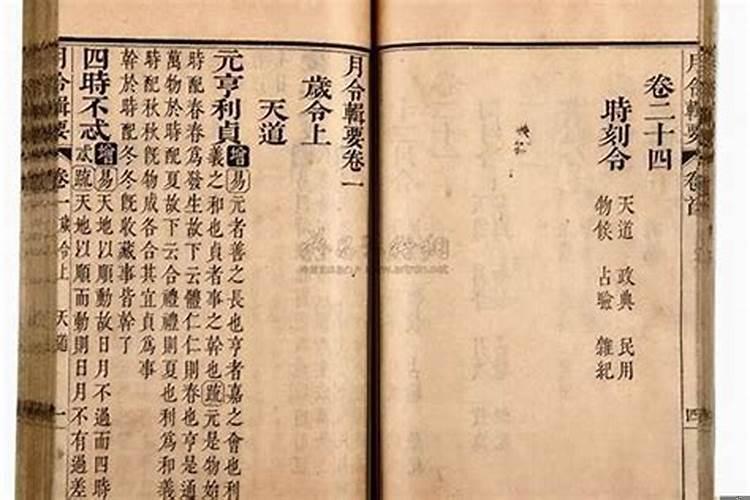 月令輯要 卷首 四
卷二十四
時刻令
天道 政典 民用
物候 占驗 雜紀
月令輯要卷一
歲令上
天道
元亨利貞 增 易 元者善之長也亨者嘉之會也利
義之和也貞者事之幹也 疏 元是物始
時配春春爲發生故下云體仁仁則春也亨是通
萬物於時配夏故下云合禮禮則夏也利爲和義
時配秋秋既物成各合其宜貞爲事
幹於時配冬冬既收藏事皆幹了
四時不忒 增 易 天地以順動故日月不過而四時
忒 疏 天地以順而動則日月不有過差
月令輯要 卷一 歲令上 天道 一